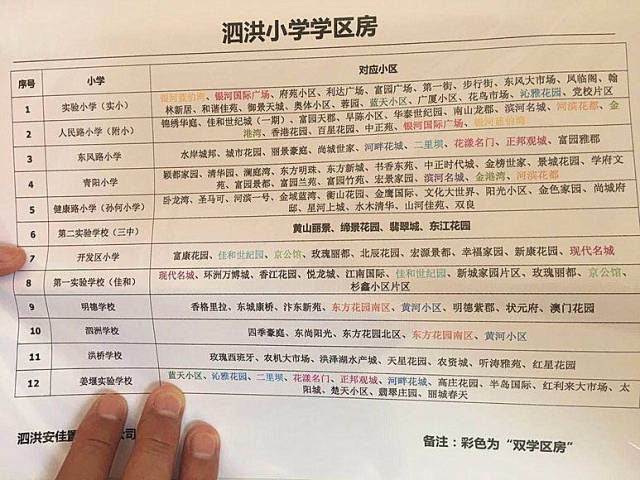 泗洪小学学区房
序号 小学 对应小区
银河蓝伯湾、银河国际广场、府苑小区、利达广场、富园广场、第一街、步行街、东风大市场、凤临阁、翰
1 实验小学（实小） 林新居、和谐佳苑、御景天城、奥体小区、蓉园、蓝天小区、广厦小区、花鸟市场、沁雅花园、党校片区
锦绣华庭、佳和世纪城（一期）、富园天郡、早陈小区、华泰世纪园、南山龙郡、滨河名城、河滨花都、金
2 人民路小学（附小） 港湾、香港花园、百星花园、中正苑、银河国际广场、
3 东风路小学 水岸城邦、城市花园、丽景豪庭、尚城世家、河畔花城、二里坝、花漾名门、正邦观城、富园雅郡
颖都家园、清华园、澜庭湾、东方明珠、东方新城、书香东苑、中正时代城、金榜世家、景城花园、学府文
4 青阳小学 苑、富园景都、富园兰苑、富园竹苑、宏景家园、滨河名城、金港湾、河滨花都
卧龙湾、圣马可、河滨一号、金域蓝湾、衡山花园、金鹰国际、文化大世界、阳光小区、金色家园、尚城府
5 健康路小学（孙何小学） 邸、星河上城、水木清华、山河佳苑、双良
6 第二实验学校（三中） 黄山丽景、缔景花园、翡翠城、东江花园
7 开发区小学 富康花园、佳和世纪园、京公馆、玫瑰丽都、北辰花园、宏源景都、幸福家园、新康花园、现代名城
8 第一实验学校（佳和） 现代名城、环洲万博城、香江花园、悦龙城、江南国际、佳和世纪园、新城家园片区、玫瑰丽都、京公馆、
杉鑫小区片区
9 明德学校 香格里拉、东城康桥、汴东新苑、东方花园南区、黄河小区、明德紫郡、状元府、澳门花园
10 泗洲学校 四季豪庭、东尚阳光、东方花园北区、东方花园南区、黄河小区
11 洪桥学校 玫瑰西班牙、农机大市场、洪泽湖水产城、天星花园、农资城、听涛雅苑、红星花园
12 姜堰实验学校 蓝天小区、沁雅花园、二里坝、花漾名门、正邦观城、河畔花城、高庄花园、半岛国际、红利来大市场、太
阳城、楚天小区、翡翠庄园、丽城春天
泗洪安佳置 公司
备注：彩色为“双学区房”